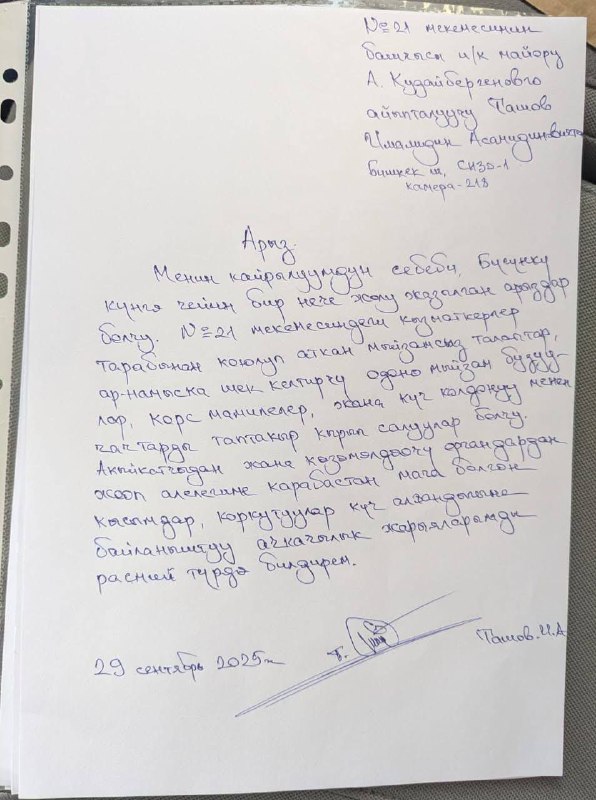 №21 мекемесинин
башчысы и/к майору
А. Кудайбергеновго
айыпталуучу Ташов
Имамидин Асанидинович
Бишкек ш, СИЗО-1
камера-218
Арыз.
Менин кайрылуумдун себеби, Бүгүнкү
күнгө чейин бир нече жолу жазалган арыздар
болчу. №21 мекемесиндеги кызматкерлер
тарабынан коюлуп аткан мыйзамсыз талаптар,
ар-намыска шек келтирчү одоно мыйзам бузуу-
лар, корс мамилелер, жана күч колдонуу менен
чачтарды таптакыр кырып салуулар болчу.
Акыйкатчыдан жана көзөмөлдөөчү органдардан
жооп алелегиме карабастан мага болгон
кысымдар, коркутуулар күч алгандыгына
байланыштуу ачкачылык жарыяларымды
расмий түрдө билдирем.
29 сентябрь 2025ж
Ташов.И.А